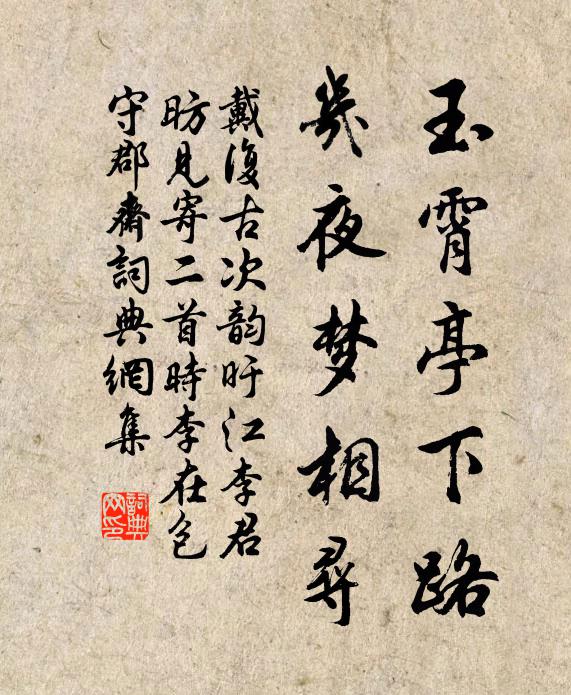 玉霄亭下路
幾夜梦相尋
戴復古次韵盱江李君
昉見寄二首時李在包
守郡齋詞典網集
詞典
网印